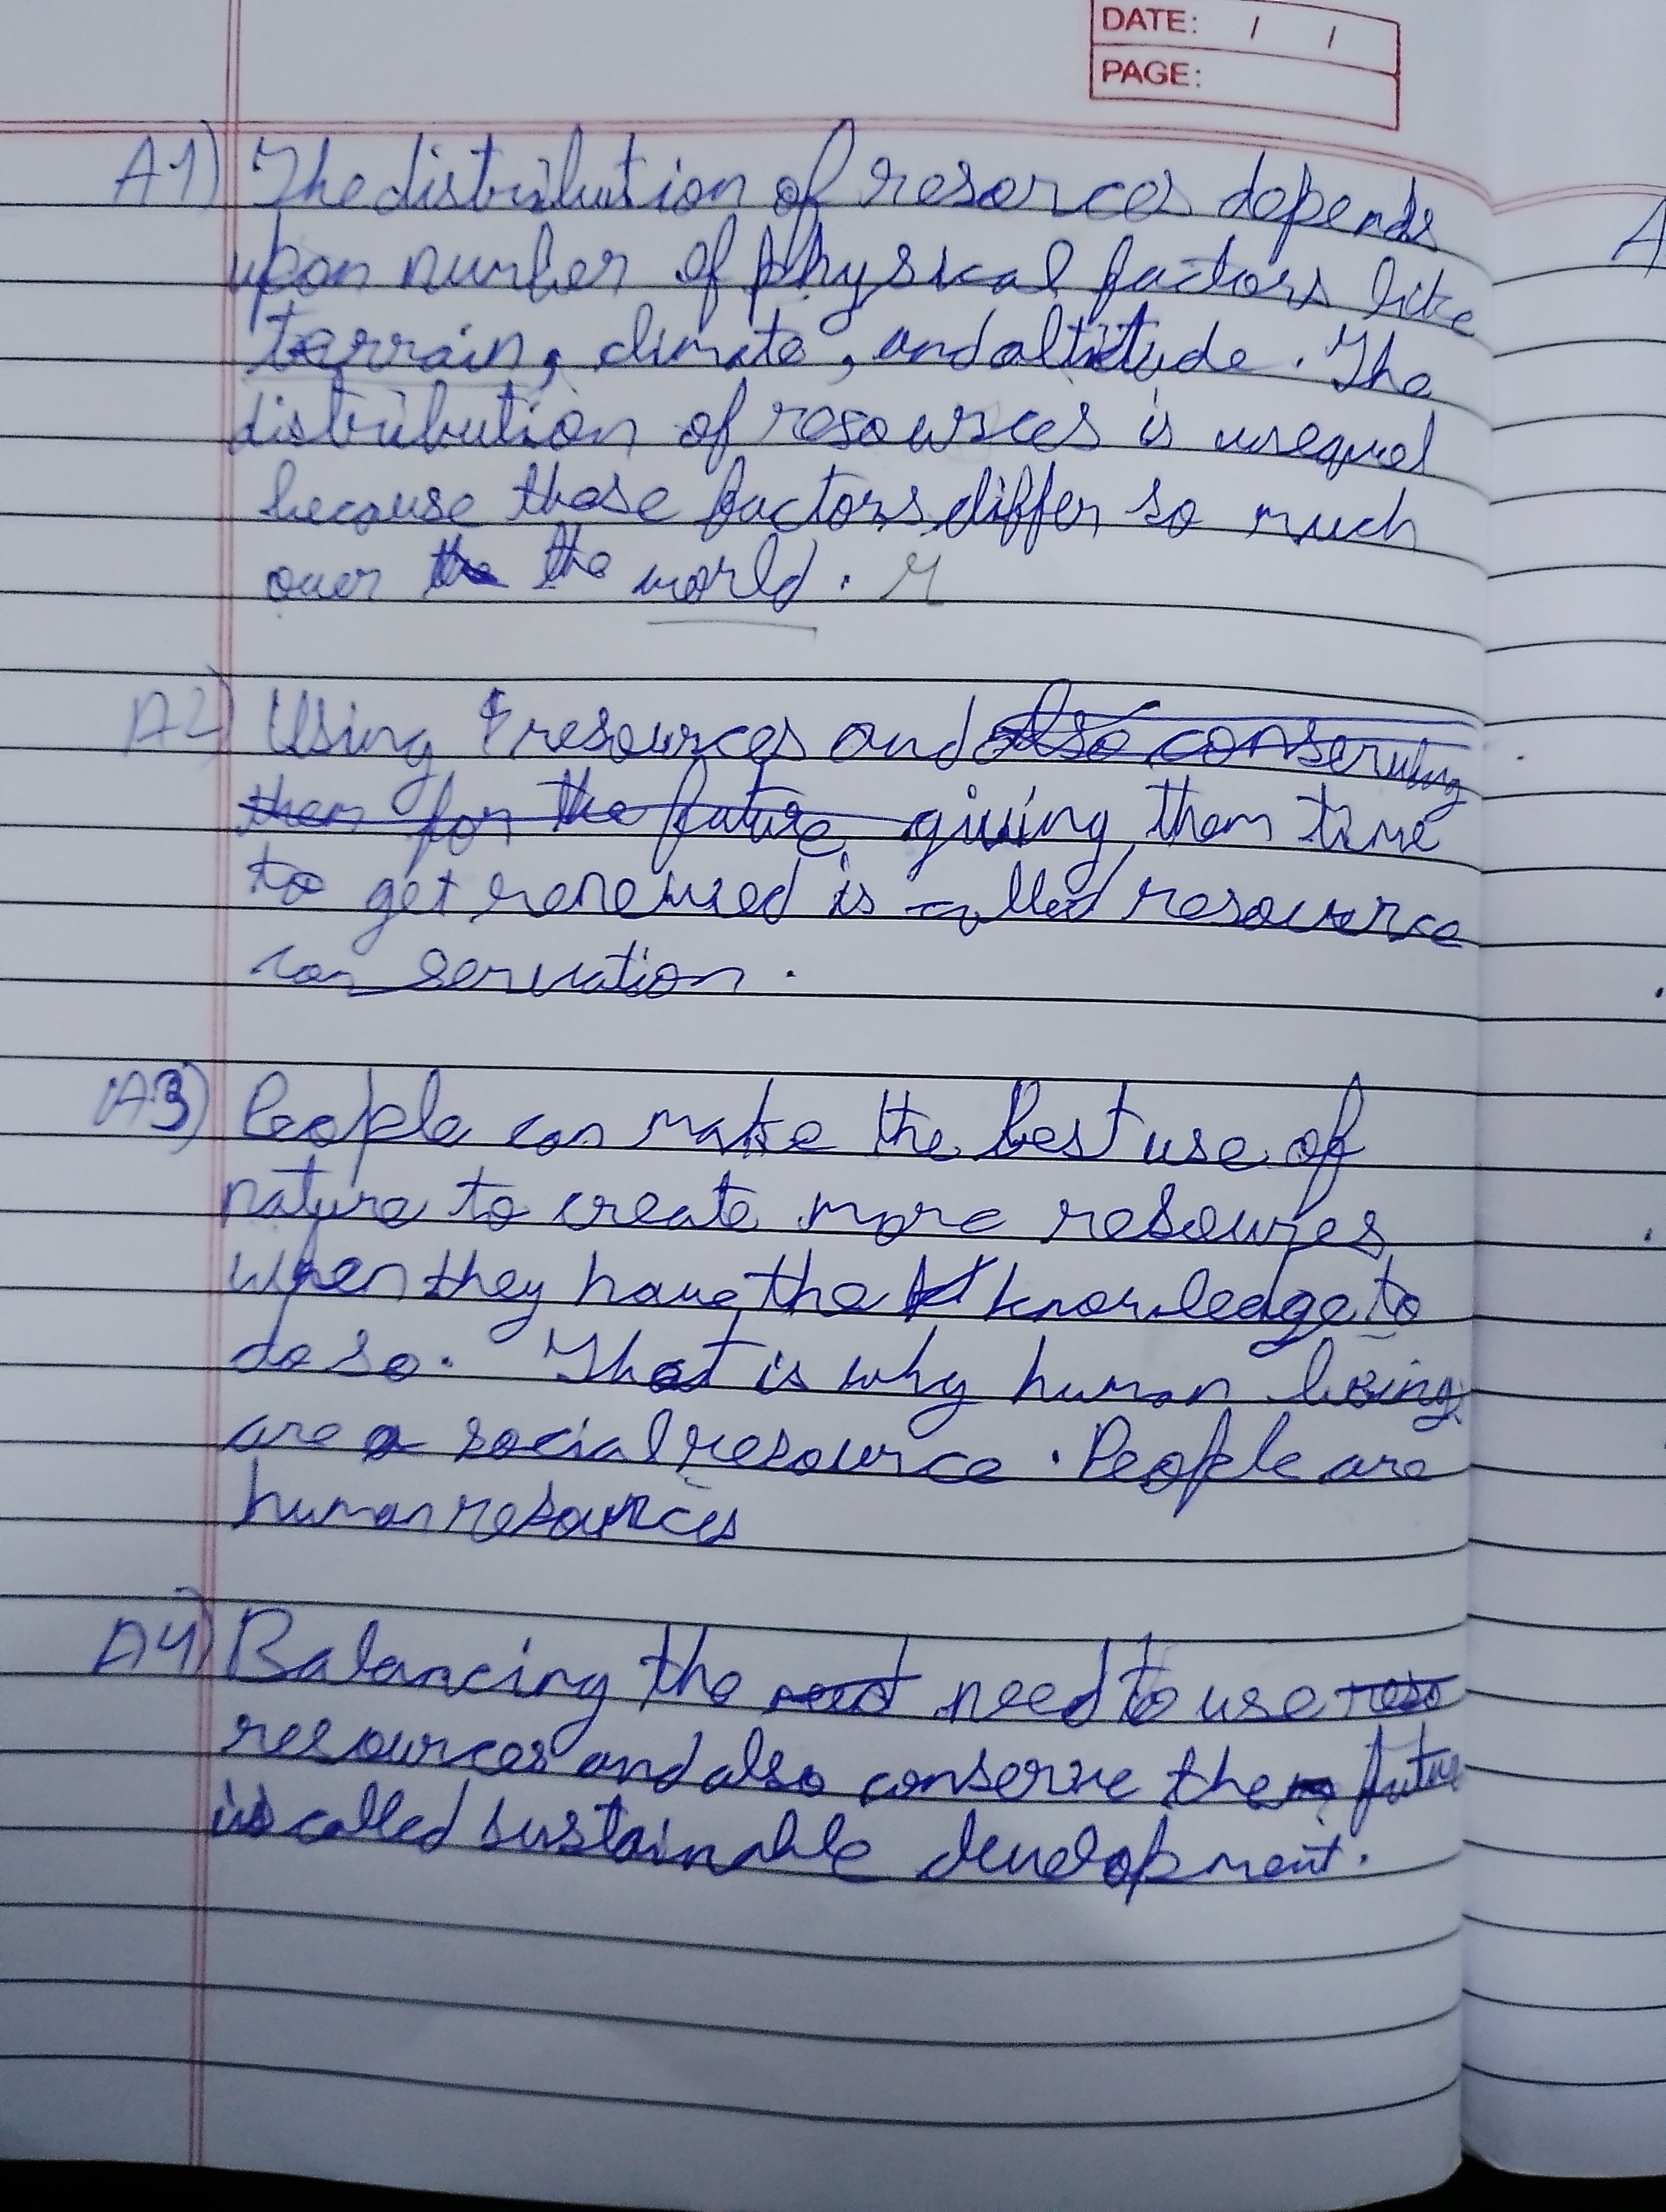 DATE: / /
PAGE:
A1) The distribution of resorces depends
upon number of physical factors like
terrain, climate, and altitude. The
distribution of resources is unequal
because these factors differ so much
over the the world.
A2) Using resources and also conserving
them for the future giving them time
to get renewed is called resource
conservation.
A3) People can make the best use of
nature to create more resources
when they have the knowledge to
do so. That is why human being
are a social resource. People are
human resources
A4) Balancing the need to use reso
resources and also conserve them future
is called sustainable development.
A